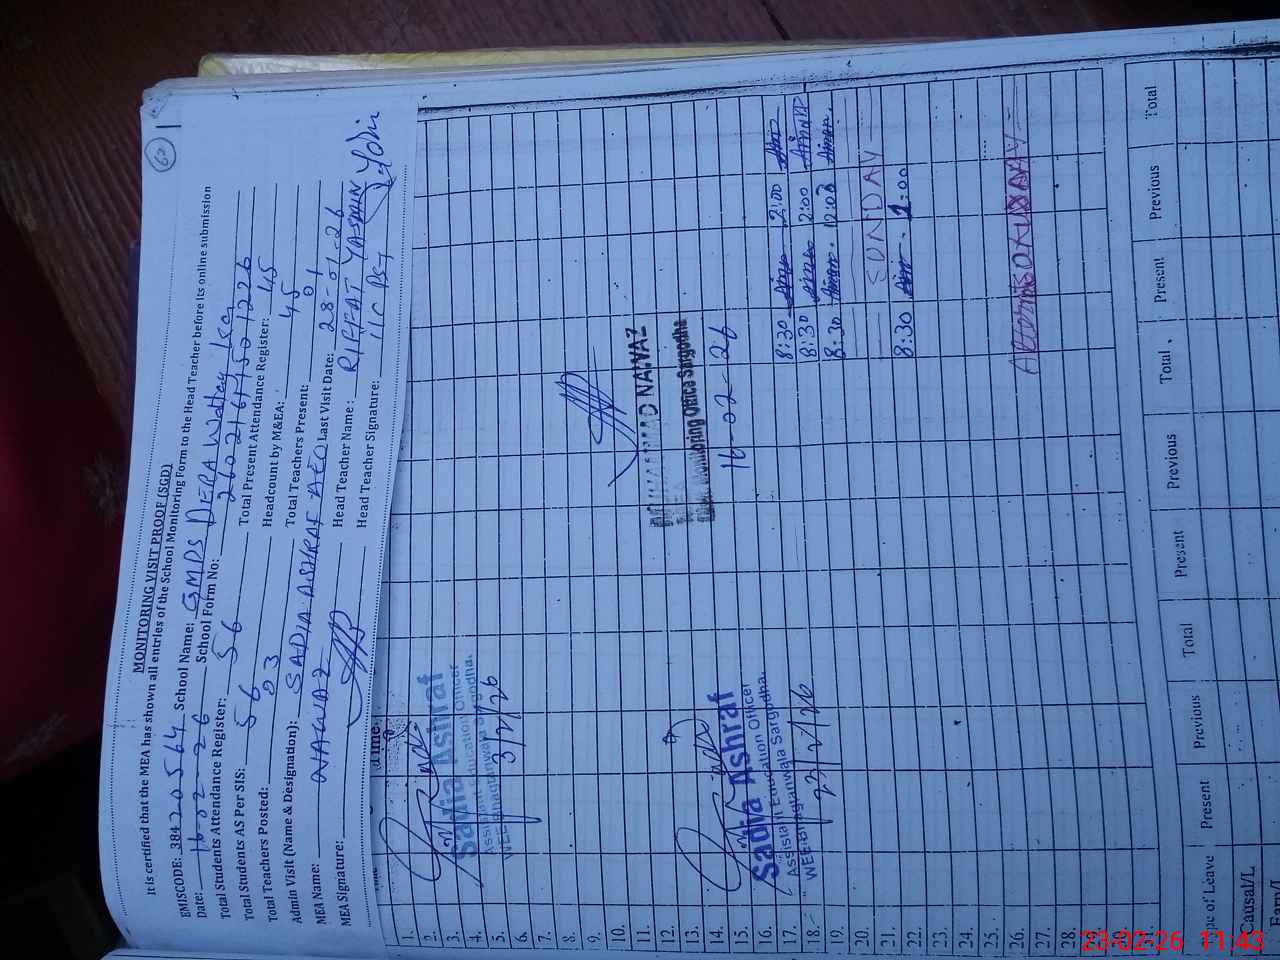 62
MONITORING VISIT PROOF (SGD)
It is certified that the MEA has shown all entries of the School Monitoring Form to the Head Teacher before its online submission
EMISCODE: 38420564 School Name: GMPS DERA Wattay Isa
Date: 16-02-26 School Form No: 26021644501226
Total Students Attendance Register: 56 Total Present Attendance Register: 45
Total Students AS Per SIS: 56 Headcount by M&EA: 45
Total Teachers Posted: 03 Total Teachers Present: 01
Admin Visit (Name & Designation): SADIA ASHRAF AEO Last Visit Date: 28-01-26
MEA Name: NAWAZ Head Teacher Name: RIFFAT YASMIN
MEA Signature: Head Teacher Signature: I/C PST
1.
2.
3.
4.
5.
6.
7.
8.
9.
10.
11.
12.
13.
14.
15.
16.
17.
18.
19.
20.
21.
22.
23.
24.
25.
26.
27.
28.
Sadia Ashraf
Assistant Education Officer
WEE:Bhagtanwala Sargodha.
3/2/26
MUHAMMAD NAWAZ
MEA
Monitoring Office Sargodha
16-02-26
Sadia Ashraf
Assistant Education Officer
WEE:Bhagtanwala Sargodha.
23/2/26
8:30 2:00
8:30 2:00
8:30 12:00
SUNDAY
8:30 1:00
Present Previous Total Present Previous Total Present Previous Total
Type of Leave
Causal/L
23-02-26 11:43